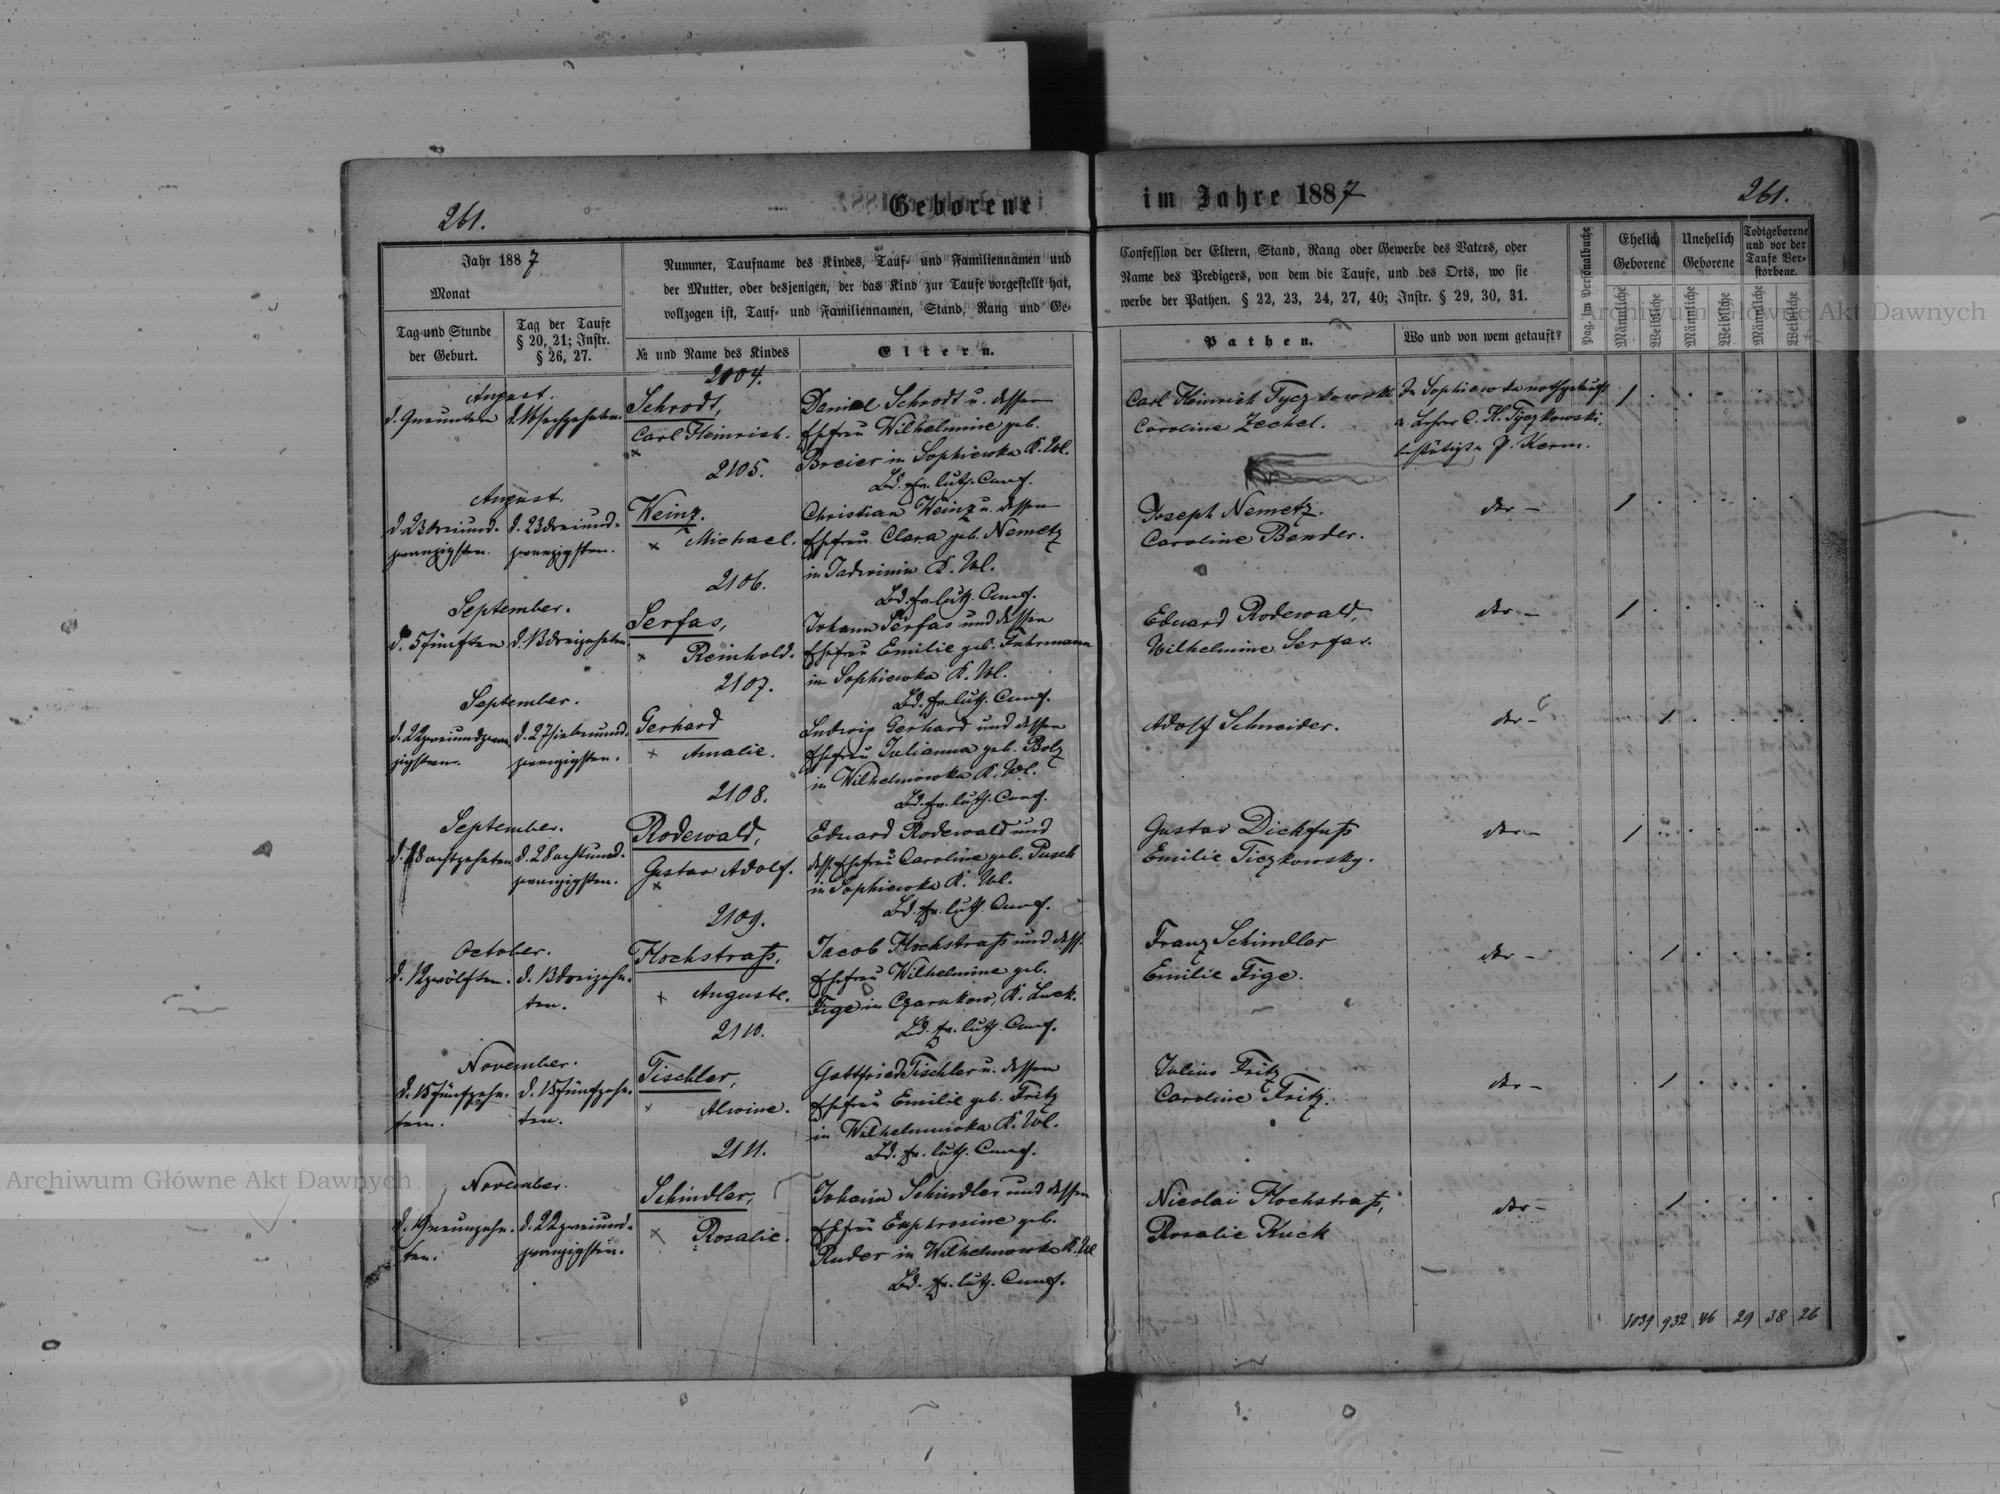 261.
Geborene
im Jahre 1887
261.
Jahr 1887
Monat
Tag und Stunde
der Geburt.
Tag der Taufe
§ 20, 21; Instr.
§ 26, 27.
Nummer, Taufname des Kindes, Tauf- und Familiennamen und
der Mutter, oder desjenigen, der das Kind zur Taufe vorgestellt hat,
vollzogen ist, Tauf- und Familiennamen, Stand, Rang und Ge-
№ und Name des Kindes
Eltern.
Confession der Eltern, Stand, Rang oder Gewerbe des Vaters, oder
Name des Predigers, von dem die Taufe, und des Orts, wo sie
werbe der Pathen. § 22, 23, 24, 27, 40; Instr. § 29, 30, 31.
Pathen.
Wo und von wem getauft?
Pag. im Personalbuche
Ehelich
Geborene
Unehelich
Geborene
Todtgeborene
und vor der
Taufe Ver-
storbene.
Männliche
Weibliche
Männliche
Weibliche
Männliche
Weibliche
2104.
August.
d. 9 neunten
d. 16 sechzehnten.
Schrodt,
Carl Heinrich.
Daniel Schrodt u. dessen
Ehefrau Wilhelmine geb.
Breier in Sophiewka K. Wl.
Bd. ev. luth. Conf.
Carl Heinrich Tyczkowski
Caroline Zechel.
In Sophiewka nothgetauft
v. Lehrer C. H. Tyczkowski,
bestätigt v. P. Kerm.
1
2105.
August.
d. 23 dreiund-
zwanzigsten.
d. 23 dreiund-
zwanzigsten.
Weinz.
Michael.
Christian Weinz u. dessen
Ehefrau Clara geb. Nemetz
in Jadwinin K. Wl.
Bd. ev. luth. Conf.
Joseph Nemetz.
Caroline Bander.
der –
1
2106.
September.
d. 5 fünften
d. 13 dreizehnten.
Serfas,
Reinhold.
Johann Serfas und dessen
Ehefrau Emilie geb. Fuhrmann
in Sophiewka K. Wl.
Bd. ev. luth. Conf.
Eduard Rodewald,
Wilhelmine Serfas.
der –
1
2107.
September.
d. 22 zweiundzwan-
zigsten.
d. 27 siebenund-
zwanzigsten.
Gerhard
Amalie.
Ludwig Gerhard und dessen
Ehefrau Julianna geb. Bolz
in Wilhelmowka K. Wl.
Bd. ev. luth. Conf.
Adolf Schneider.
der –
1
2108.
September.
d. 18 achtzehnten
d. 28 achtund-
zwanzigsten.
Rodewald,
Gustav Adolf.
Eduard Rodewald und
dess. Ehefrau Caroline geb. Pusch
in Sophiewka K. Wl.
Bd. ev. luth. Conf.
Gustav Dickfuß
Emilie Ticzkowsky.
der –
1
2109.
October.
d. 12 zwölften.
d. 13 dreizehn-
ten.
Hochstraß,
Auguste.
Jacob Hochstraß und dess.
Ehefrau Wilhelmine geb.
Fige in Czarukow, K. Luck.
Bd. ev. luth. Conf.
Franz Schindler
Emilie Fige.
der –
1
2110.
November.
d. 15 fünfzehn-
ten.
d. 15 fünfzehn-
ten.
Tischler,
Alwine.
Gottfried Tischler u. dessen
Ehefrau Emilie geb. Fritz
in Wilhelmowka K. Wl.
Bd. ev. luth. Conf.
Julius Fritz
Caroline Fritz.
der –
1
2111.
November.
d. 19 neunzehn-
ten.
d. 22 zweiund-
zwanzigsten.
Schindler,
Rosalie.
Johann Schindler und dessen
Ehefrau Euphrosine geb.
Ruder in Wilhelmowka K. Wl
Bd. ev. luth. Conf.
Nicolai Hochstraß,
Rosalie Kuck
der –
1
1039 932 46 29 38 26
Archiwum Główne Akt Dawnych
Archiwum Główne Akt Dawnych